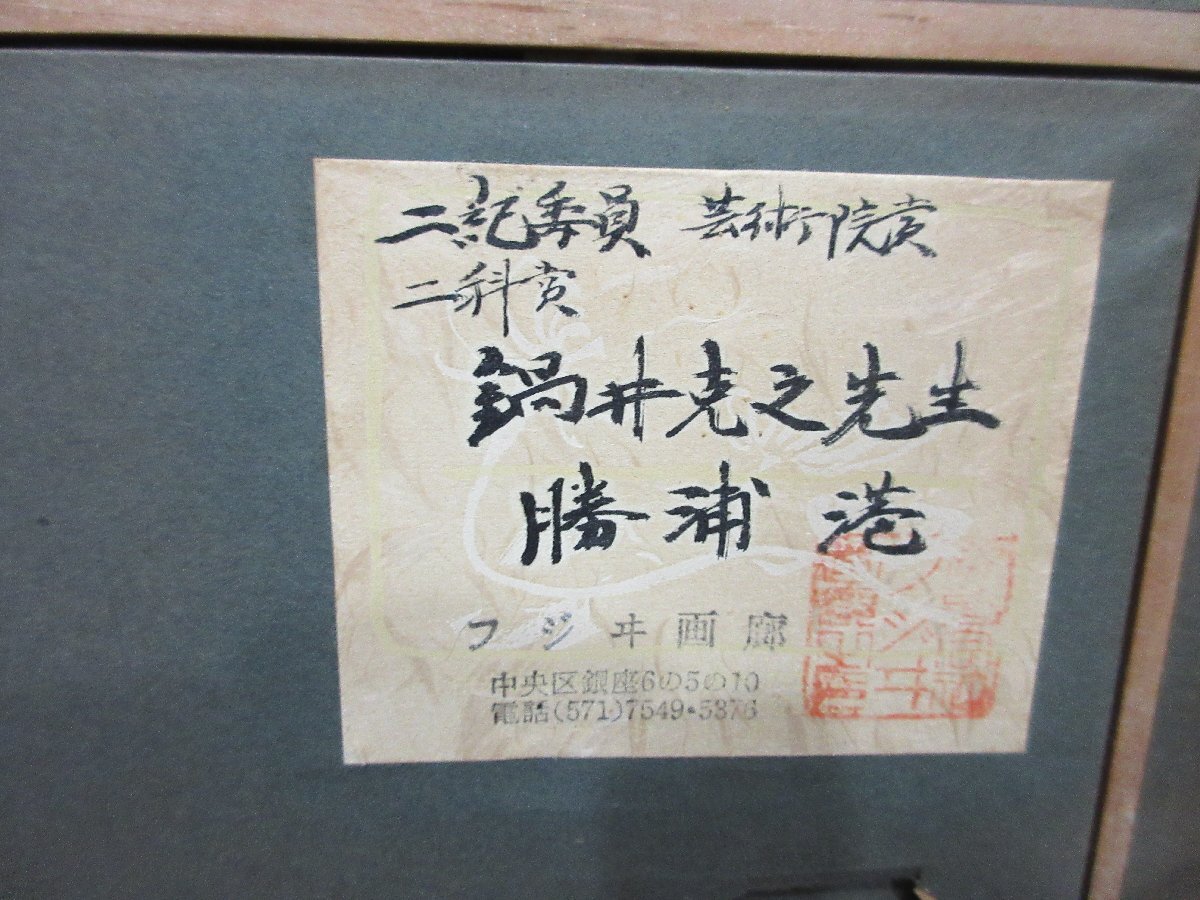 二紀委員 芸術院賞
二科賞
鍋井克之先生
勝浦港
フジヰ画廊
中央区銀座6の5の10
電話(571)7549・5376